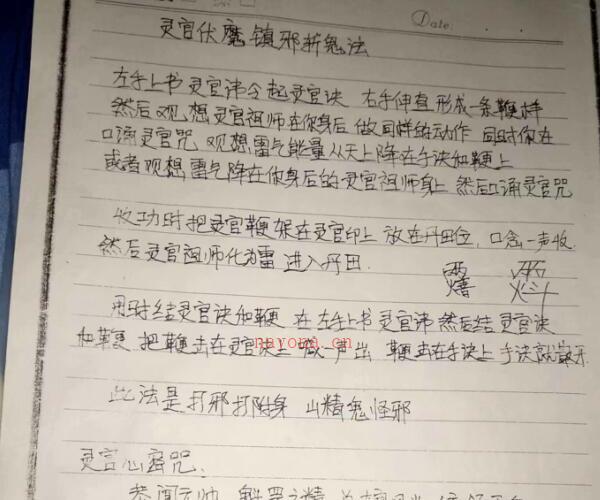 Date:
灵官伏魔镇邪斩鬼法
左手上书灵官讳令起灵官诀 右手伸直形成一条鞭样
然后观想灵官祖师在你身后做同样的动作 同时你在
口诵灵官咒 观想雷气能量从天上降在手诀和鞭上
或者观想雷气降在你身后的灵官祖师身上 然后口诵灵官咒
收功时把灵官鞭架在灵官印上 放在丹田位, 口念一声收
然后灵官祖师化为雷进入丹田.
用时结灵官诀和鞭 在左手上书灵官讳然后结灵官诀
和鞭 把鞭击在灵官诀上 喊一声出 鞭击在手诀上 手诀就散开
nayona.cn
此法是打邪打附身 山精鬼怪邪
灵官心密咒.